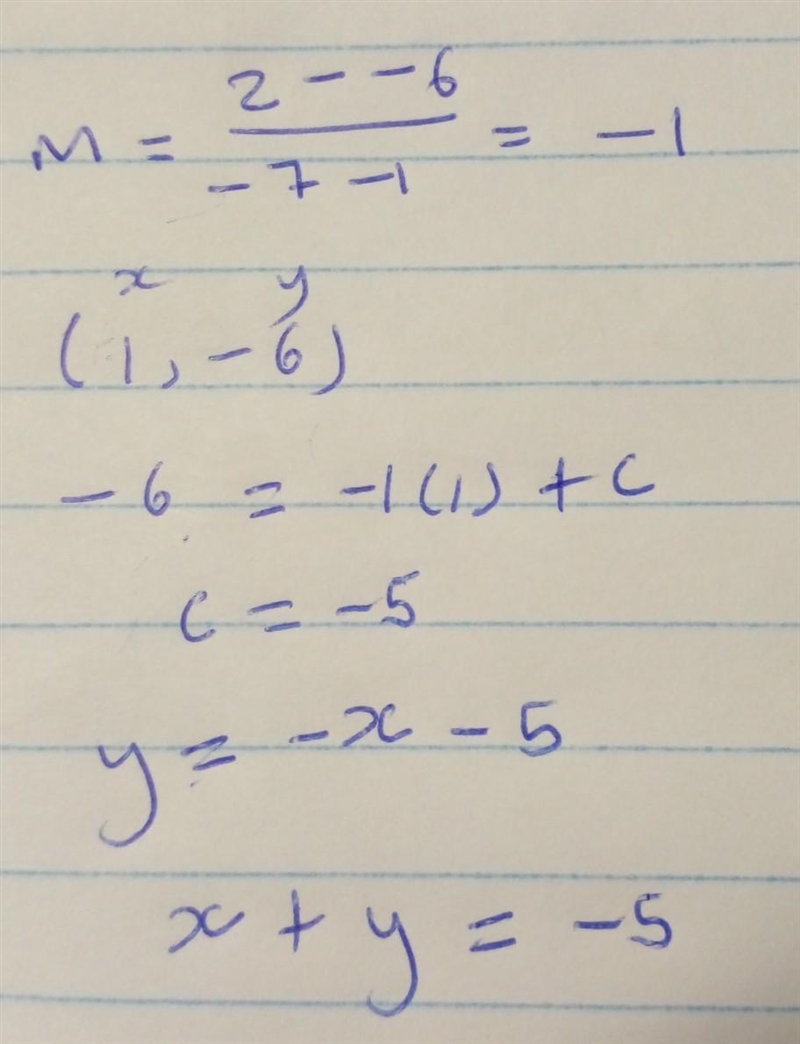 M = 2 - - 6 / -7 - 1 = -1
x y
(1, -6)
-6 = -1(1) + c
c = -5
y = -x - 5
x + y = -5